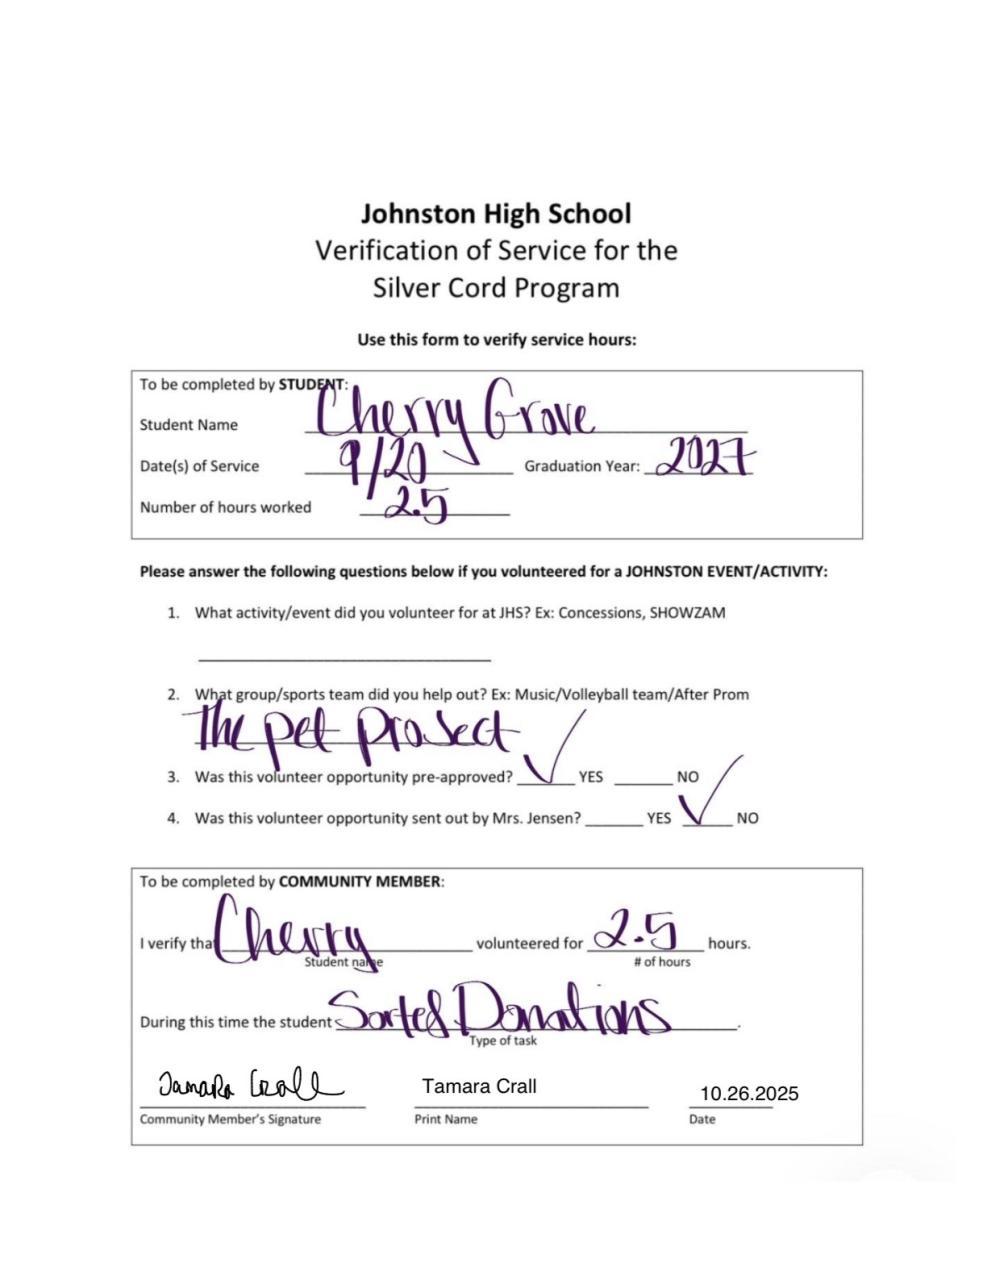 Johnston High School
Verification of Service for the
Silver Cord Program
Use this form to verify service hours:
To be completed by STUDENT:
Student Name Cherry Grove
Date(s) of Service 9/20 Graduation Year: 2027
Number of hours worked 2.5
Please answer the following questions below if you volunteered for a JOHNSTON EVENT/ACTIVITY:
1. What activity/event did you volunteer for at JHS? Ex: Concessions, SHOWZAM
2. What group/sports team did you help out? Ex: Music/Volleyball team/After Prom
The pet project
3. Was this volunteer opportunity pre-approved? ✓ YES NO
4. Was this volunteer opportunity sent out by Mrs. Jensen? YES ✓ NO
To be completed by COMMUNITY MEMBER:
I verify that Cherry volunteered for 2.5 hours.
Student name # of hours
During this time the student Sorted Donations.
Type of task
Tamara Crall Tamara Crall 10.26.2025
Community Member's Signature Print Name Date